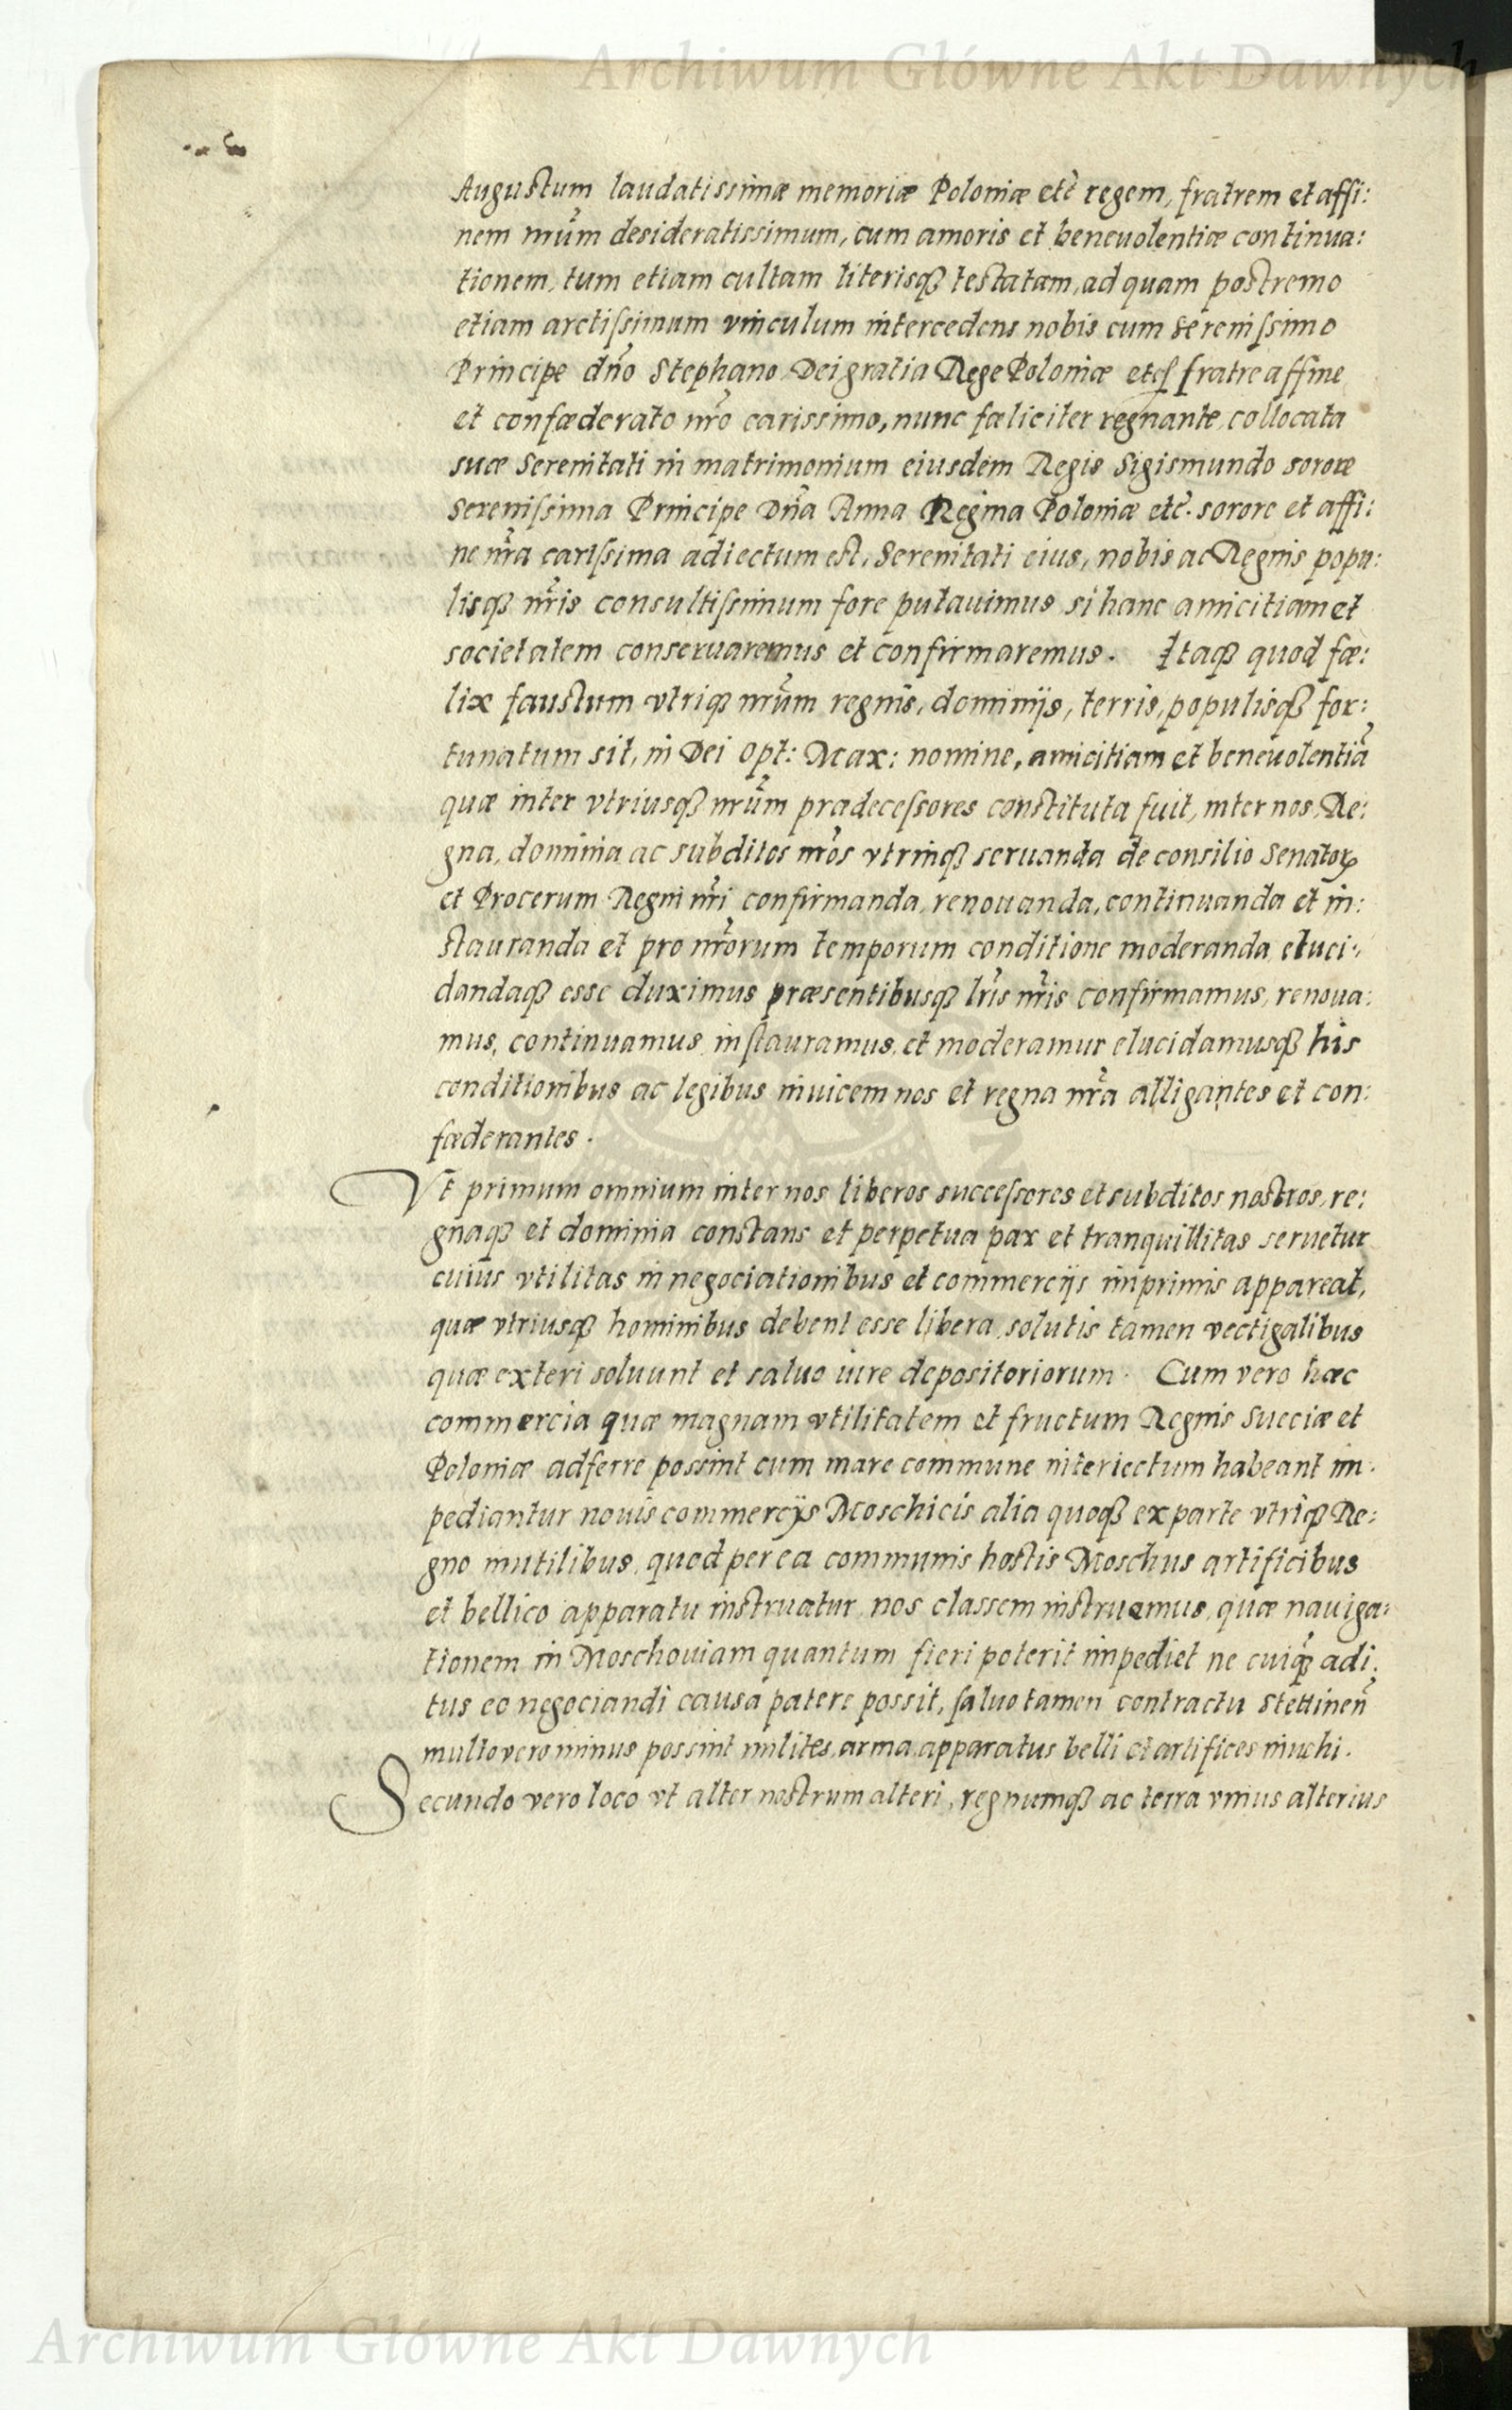 Archiwum Główne Akt Dawnych
Augustum laudatissimæ memoriæ Poloniæ etc̃ regem, fratrem et affi:
nem nr̃um desideratissimum, cum amoris et beneuolentiæ continua:
tionem, tum etiam cultam literisqꝫ testatam, ad quam postremo
etiam arctiſsimum vinculum intercedens nobis cum Sereniſsimo
Principe dño Stephano Dei gratia Rege Poloniæ etc fratre affine
et confæderato nr̃o carissimo, nunc fæliciter regnante, collocata
suæ Serenitati in matrimonium eiusdem Regis Sigismundo sorore
Sereniſsima Principe Dña Anna Regina Poloniæ etc̃. sorore et affi:
ne nr̃a cariſsima adiectum est, Serenitati eius, nobis ac Regnis popu:
lisqꝫ nr̃is consultiſsimum fore putauimus si hanc amicitiam et
societatem conseruaremus et confirmaremus. Itaqꝫ quod fæ:
lix faustum vtriqꝫ nr̃um regnis, dominijs, terris, populisqꝫ for:
tunatum sit, in Dei Opt: Max: nomine, amicitiam et beneuolentiã
quæ inter vtriusqꝫ nr̃um prædeceſsores constituta fuit, inter nos, Re:
gna, dominia ac subditos nr̃os vtrinqꝫ seruanda de consilio Senatorꝝ
et Procerum Regni nr̃i confirmanda, renouanda, continuanda et in:
stauranda et pro nr̃orum temporum conditione moderanda eluci:
dandaqꝫ esse duximus præsentibusqꝫ lr̃is nr̃is confirmamus, renoua:
mus, continuamus inſtauramus, et moderamur elucidamusqꝫ his
conditionibus ac legibus inuicem nos et regna nr̃a alligantes et con:
fæderantes.
Vt primum omnium inter nos liberos succeſsores et subditos nostros, re:
gnaqꝫ et dominia constans et perpetua pax et tranquillitas seruetur
cuius vtilitas in negociationibus et commercijs inprimis appareat,
quæ vtriusqꝫ hominibus debent esse libera, solutis tamen vectigalibus
quæ exteri soluunt et saluo iure depositoriorum. Cum vero hæc
commercia quæ magnam vtilitatem et fructum Regnis Sueciæ et
Poloniæ adferre possint cum mare commune interiectum habeant im:
pediantur nouis commercijs Moschicis alia quoqꝫ ex parte vtriqꝫ Re:
gno inutilibus, quod per ea communis hostis Moschus artificibus
et bellico apparatu instruatur, nos classem instruemus, quæ nauiga:
tionem in Moschouiam quantum fieri poterit impediet ne cuiqꝫ adi:
tus eo negociandi causa patere possit, ſaluo tamen contractu Stettineñ
multo vero minus possint milites, arma, apparatus belli et artifices inuehi.
Secundo vero loco vt alter nostrum alteri, regnumqꝫ ac terra vnius alterius
Archiwum Główne Akt Dawnych